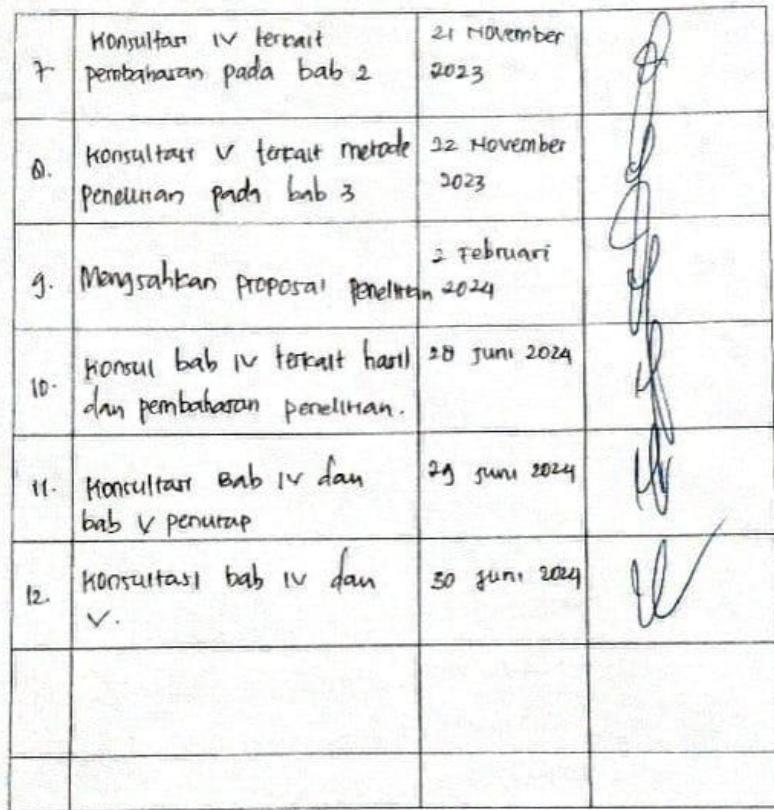 7
Konsultasi IV terkait
pembahasan pada bab 2
21 November
2023
8.
Konsultasi V terkait metode
penelitian pada bab 3
22 November
2023
9.
Mengsahkan proposal penelitian
2 Februari
2024
10.
Konsul bab IV terkait hasil
dan pembahasan penelitian.
28 Juni 2024
11.
Konsultasi Bab IV dan
bab V penutup
29 Juni 2024
12.
Konsultasi bab IV dan
V.
30 Juni 2024